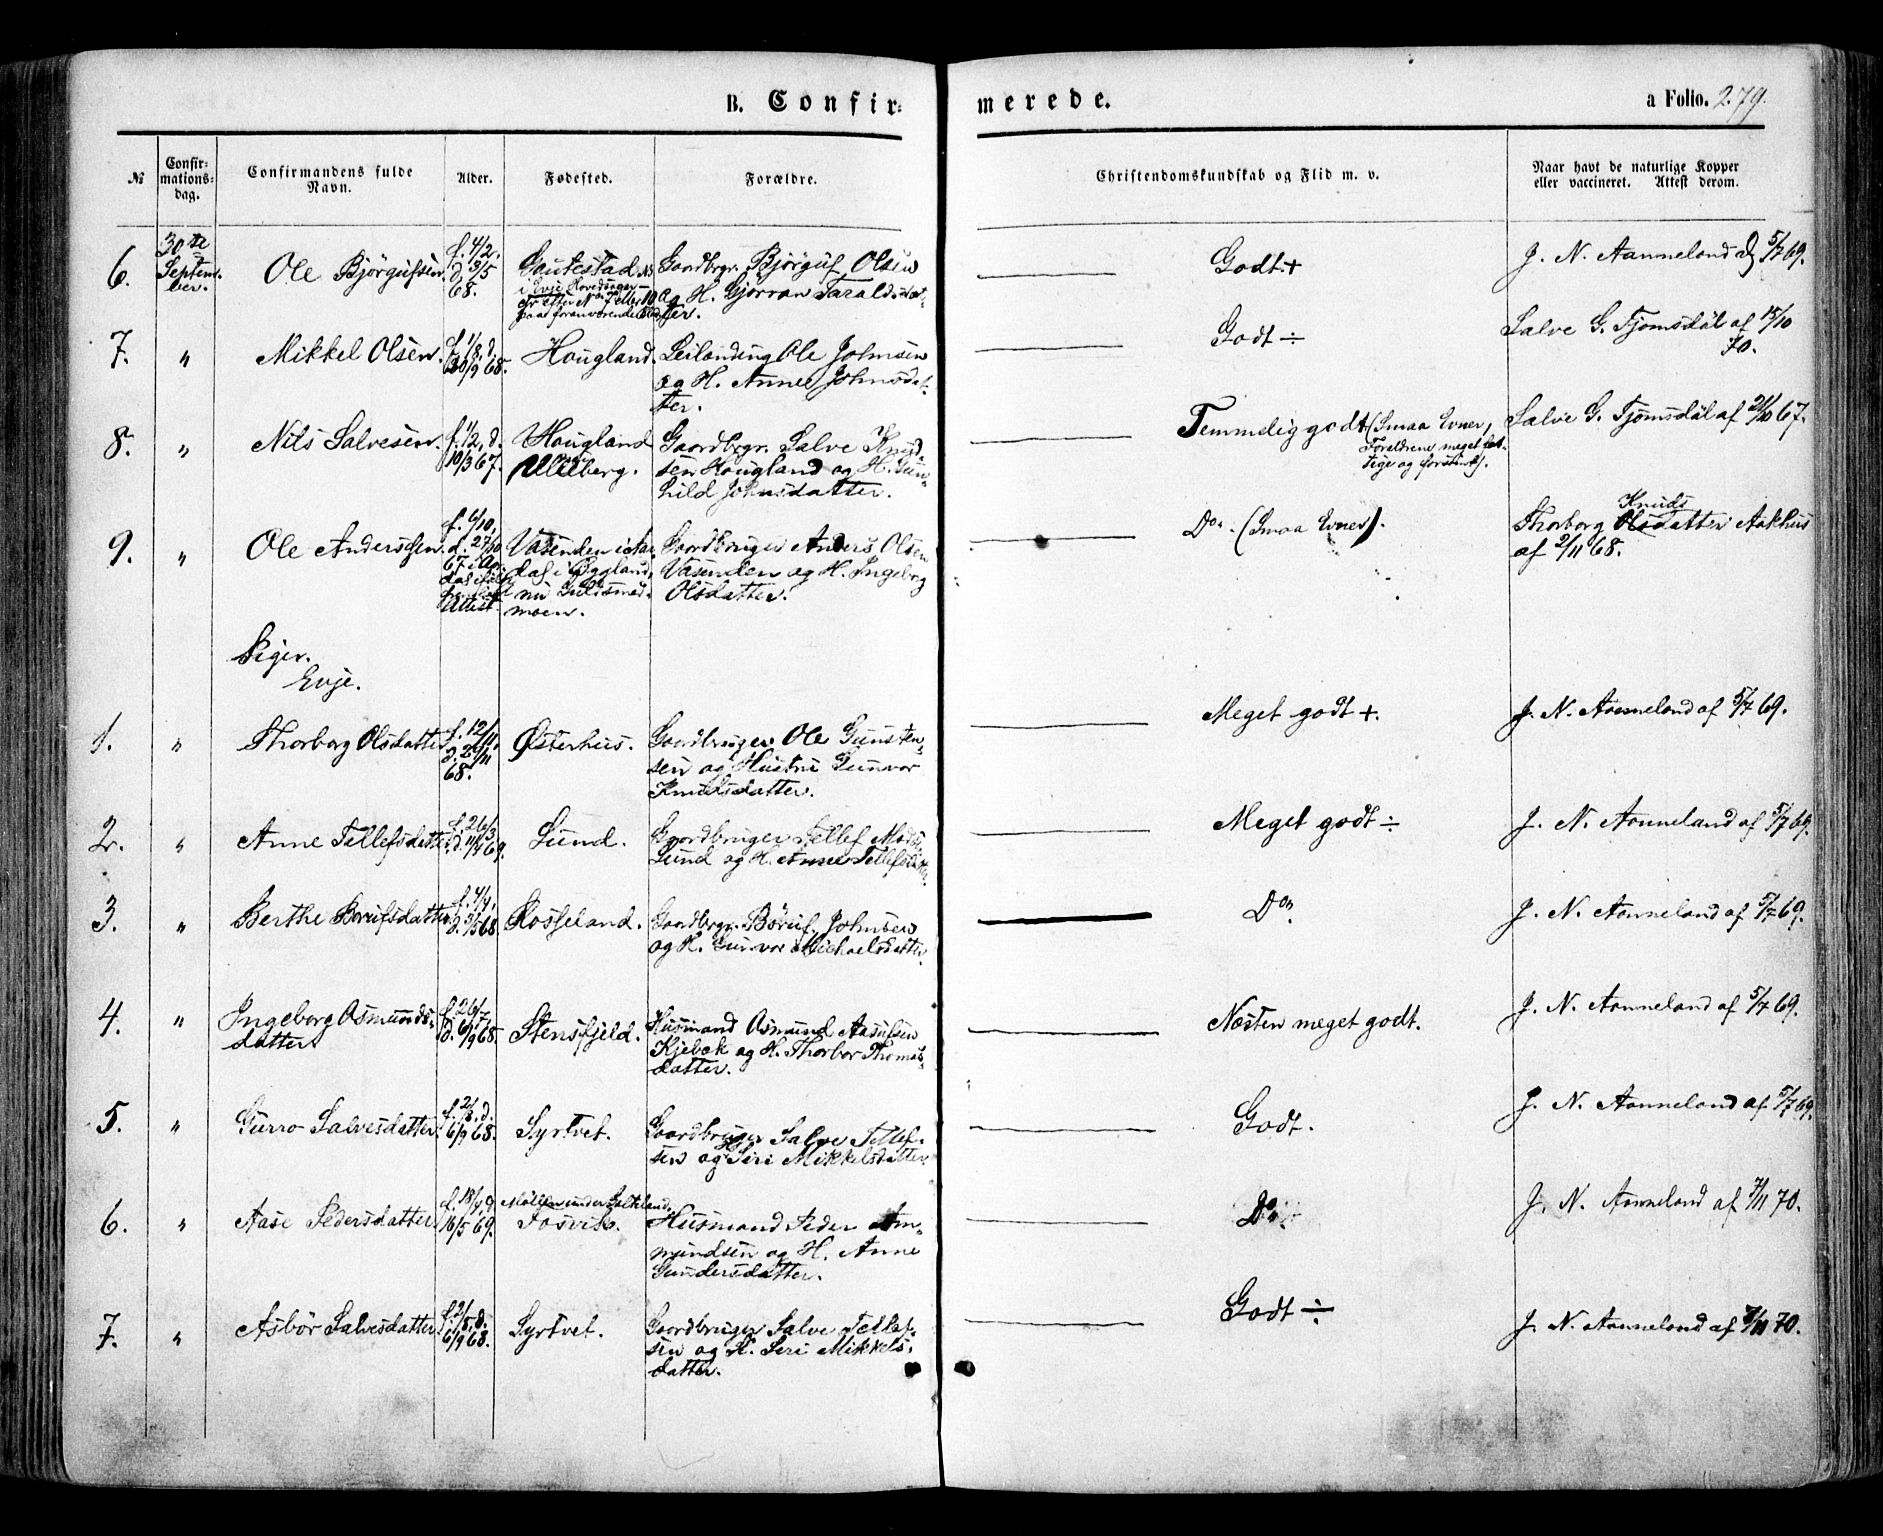 B. Confir- merede. a Folio. 279.
№ Confirmationsdag. Confirmandens fulde Navn. Alder. Fødested. Forældre. Christendomskundskab og Flid m. v. Naar havt de naturlige Kopper eller vaccineret. Attest derom.
6. 30te September. Ole Bjørgufsen. f. 4/2. d. 3/5 68. Gautestad i Evje Hovedsogn Gaardbrgr. Bjørguf Olsen og H. Gjørran Taraldsdatter. Godt + J. N. Aanneland 5/7 69.
7. " Mikkel Olsen. f. 1/8. d. 20/9 68. Hougland. Leilænding Ole Johnsen og H. Anne Johnsdatter. Godt ÷ Salve G. Tjomsdøl af 15/10 70.
8. " Nils Salvesen. f. 1/2, d. 10/3 67. Hougland Uleberg. Gaardbrgr. Salve Knudsen Hougland og H. Gunhild Johnsdatter. Temmelig godt (Smaa Evner, Forældrene meget fattige og Salve G. Tjomsdøl af 21/10 67.
9. " Ole Anderssen. f. 6/10, d. 27/10 67 Attest. Vasenden i Aardal i Bygland, nu Guldsmedmoen. Gaardbruger Anders Olsen Vasenden og H. Ingeborg Olsdatter. Do. (Smaa Evner). Thorborg Knudsdatter Aakhus af 2/11 68.
Piger.
Evje.
1. " Thorborg Olsdatter f. 12/11. d. 29/11 68. Østerhus. Gaardbruger Ole Gunstensen og Hustru Gunvor Knudsdatter. Meget godt +. J. N. Aanneland af 5/7 69.
2. " Anne Tellefsdatter f. 26/3 d. 11/4 69. Lund. Gaardbruger Tellef Mads. Lund og H. Anne Tellefsdatter. Meget godt ÷ J. N. Aanneland af 5/7 69.
3. " Berthe Børufsdatter f. 4/4, d. 3/5 68. Rosseland. Gaardbrgr. Børuf Johnsen og H. Gunvor Michaelsdatter. Do. J. N. Aanneland af 5/7 69.
4. " Ingeborg Osmundsdatter f. 26/7, d. 6/9 68. Stensfjeld. Husmand Osmund Aasufsen Kjebæk og H. Thorbor Thomasdatter. Næsten meget godt. J. N. Aanneland af 5/7 69.
5. " Gurro Salvesdatter. f. 2/8, d. 6/9 68. Syrtvet. Gaardbruger Salve Tellefsen og H. Siri Mikkelsdatter. Godt. J. N. Aanneland af 5/7 69.
6. " Aase Pedersdatter. f. 18/4, d. 16/5 69. Fosvik. Husmand Peder Amundsen og H. Anne Gundersdatter. Do. J. N. Aanneland af 7/11 70.
7. " Asbør Salvesdatter. f. 2/8, d. 6/9 68. Syrtvet. Gaardbruger Salve Tellefsen og H. Seri Mikkelsdatter. Godt ÷ J. N. Aanneland af 7/11 70.